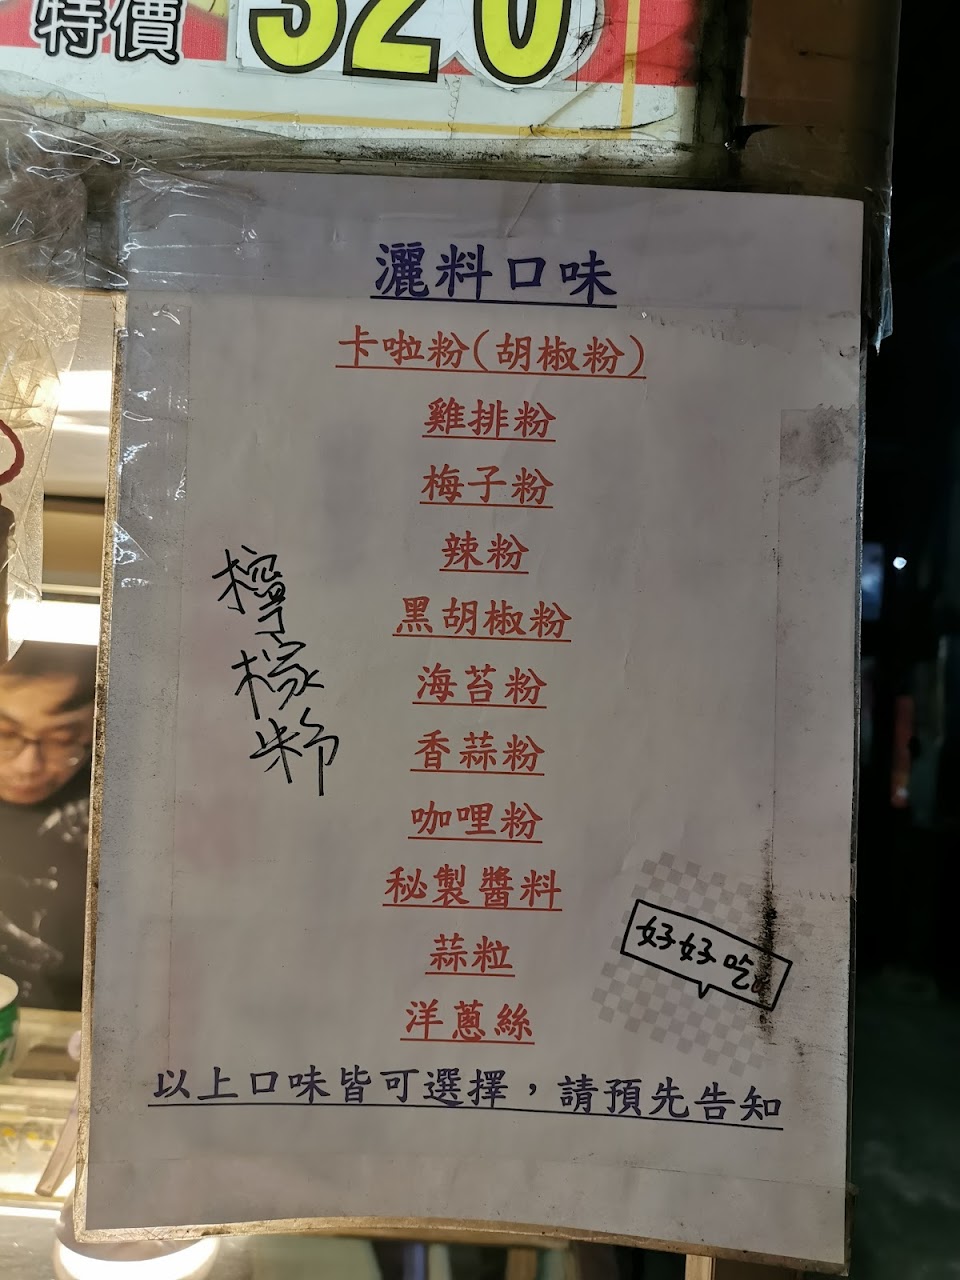 特價 320
灑料口味
卡啦粉(胡椒粉)
雞排粉
梅子粉
辣粉
黑胡椒粉
海苔粉
香蒜粉
咖哩粉
秘製醬料
蒜粒
洋蔥絲
檸檬粉
好好吃
以上口味皆可選擇，請預先告知